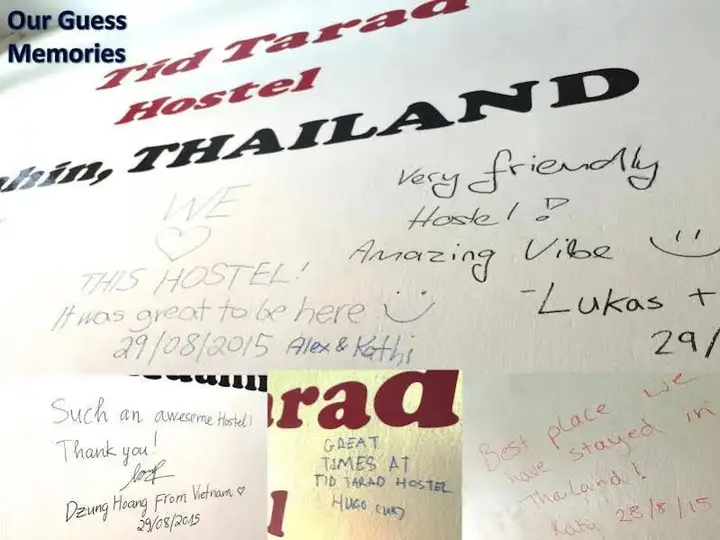 Our Guess
Memories
Tid Tarad
Hostel
hin, THAILAND
WE
♡
THIS HOSTEL!
It was great to be here
29/08/2015 Alex & Kathi
Very friendly
Hostel!
Amazing Vibe
-Lukas +
29/
Such an awesome Hostel!
Thank you!
Dzung Hoang From Vietnam ♡
29/08/2015
arad
GREAT
TIMES AT
TID TARAD HOSTEL
HUGO (UK)
Best place we
have stayed in
Thailand!
28/8/15